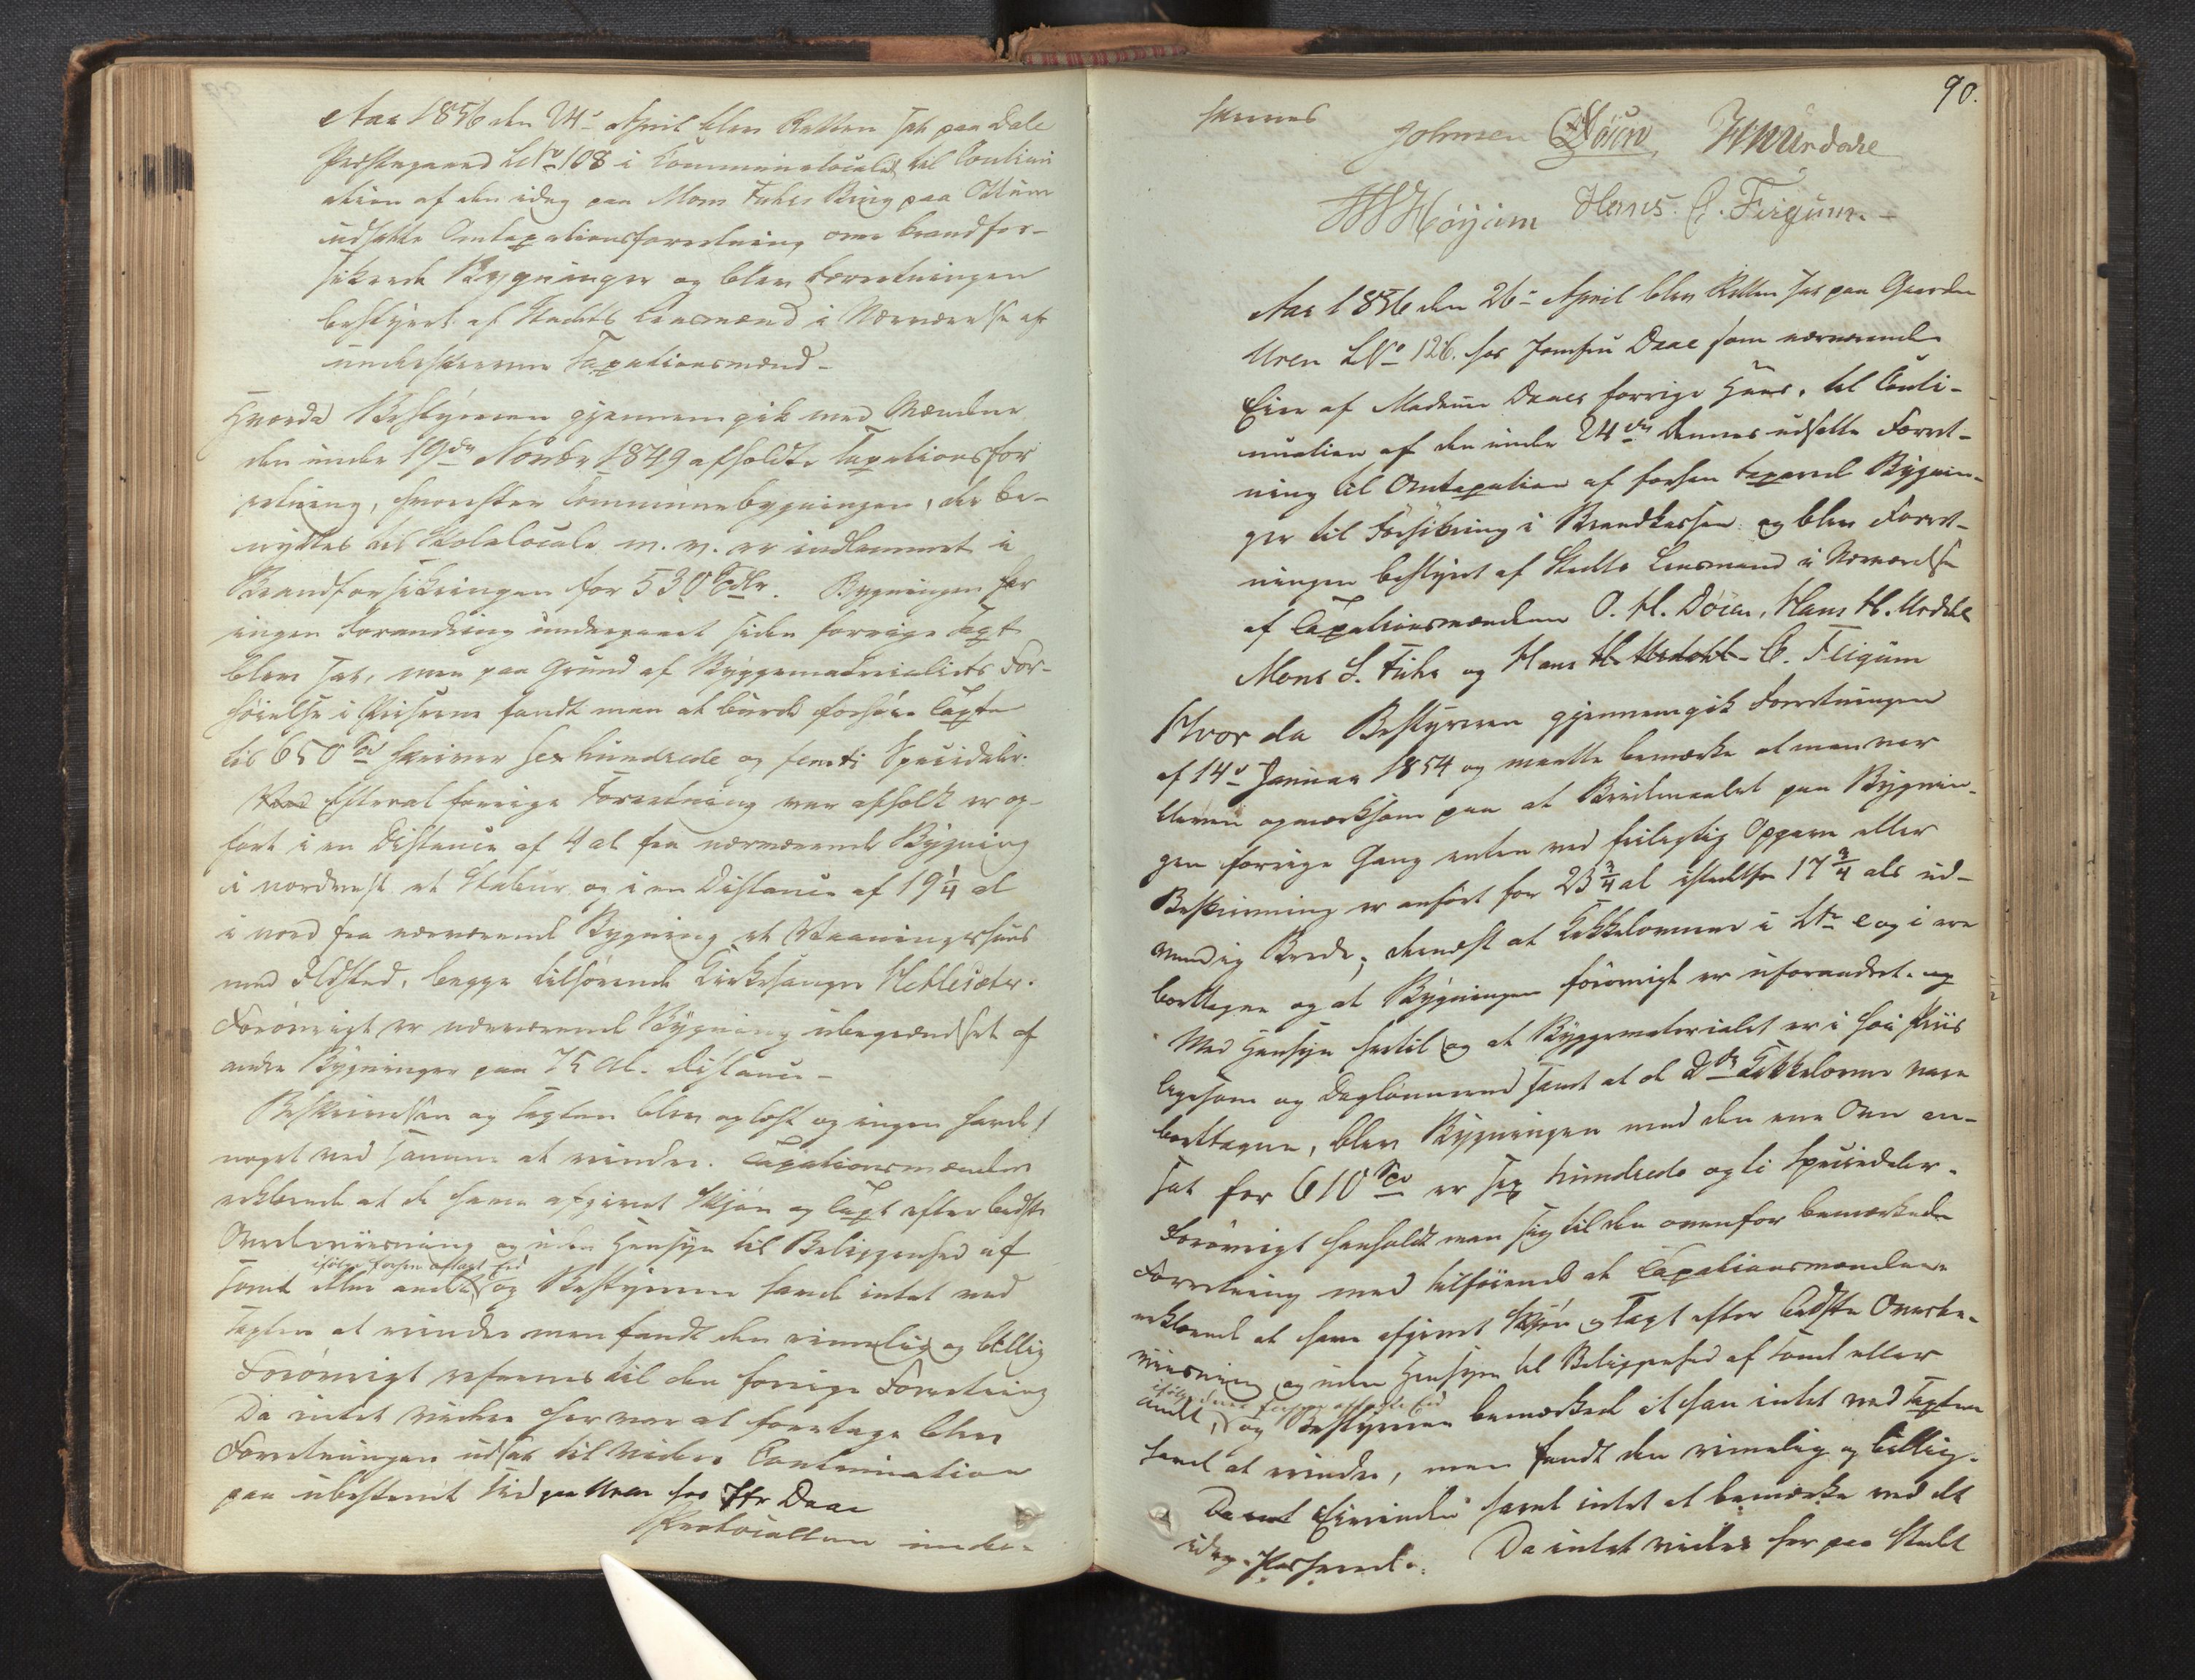 Aar 1856 den 24de April blev Retten sat paa Dale
Præstegaard LNo 108 i Communelocalet til Continu
ation af den idag paa Mons Fuhrs Brug paa Ottum
udsatte Omtaxationsforretning over brandfor-
sikrede Bygninger og blev Forretningen
bestyret af Stedets Lensmand i Nærværelse af
underskrevne Taxationsmænd -
Hvorda Bestyreren gjennemgik med Mændene
den under 19de Novbr 1849 afholdte Taxationsfor
retning, hvorefter Communebygningen, der be-
nyttes til Skolelocale m. v. er indlemmet i
Brandforsikringen for 530 Spdlr. Bygningen har
ingen Forandring undergaaet siden forrige Taxt
blev sat, men paa Grund af Byggematerialiets For-
høielse i Priserne fandt man at burde forhøie Taxten
til 650 Spd skriver sex hundrede og femti Speciedaler.
Efterat forrige Forretning var afholdt er op-
ført i en Distance af 4 al fra nærværende Bygning
i nordvest et Stabur og i en Distance af 19 1/4 al
i nord fra nærværende Bygning et Vaaningshuus
med Ildsted, begge tilhørende Kirkesanger Hetlesæter.
Forøvrigt er nærværende Bygning ubegrændset af
andre Bygninger paa 75 al. Distance -
Beskrivelsen og Taxten blev oplæst og ingen havde
noget ved samme at erindre. Taxationsmændene
erklærede at de have afgivet Skjøn og Taxt efter bedste
Overbeviisning og uden Hensyn til Beliggenhed af
ifølge forhen aflagt Eed
Sted eller andet og Bestyreren havde intet ved
Taxten at erindre men fandt den rimelig og billig
Forøvrigt refereres til den forrige Forretning
Da intet videre her var at foretage blev
Forretningen udsat til videre Continuation
paa ubestemt Tid paa Uren hos Jfr Daae
Protocollen under-
90.
skrives
Johnsen Døsen HHUrdahl
MSHøyum Hans. C. Fergum -
Aar 1856 den 26de April blev Retten sat paa Gaarden
Uren LNo 126. hos Jomfru Daae som nærværende
Eier af Madame Daaes forrige Huus, til Conti-
nuation af den under 24de dennes udsatte Forret-
ning til Omtaxation af forhen taxerede Bygnin-
ger til Forsikring i Brandkassen og blev Forret-
ningen bestyret af Stedets Lensmand i Nærværelse
af Taxationsmændene O. H. Døsen, Hans H. Urdahl
Mons S. Fuhr og Hans H. Urdahl C. Fergum
Hvor da Bestyreren gjennemgik Forretningen
af 14de Januar 1854 og maatte bemærke at man var
bleven opmærksom paa at Bredemaalet paa Bygnin-
gen forrige Gang enten ved feilagtig Opgave eller
Beskrivning er anført for 23 3/4 al istedetfor 17 3/4 als ud-
vendig Brede; dernæst at Kakkelovnene i Ltr e og i ere
borttagne og at Bygningen forøvrigt er uforandret. og
Med Hensyn hertil og at Byggematerialet er i høi Priis
ligesom og Daglønnen samt at de 2de Kakkelovne vare
borttagne, blev Bygningen med den ene Ovn an-
sat for 610 Spd er sex hundrede og ti Speciedaler.
Forøvrigt henholdt man sig til den ovenfor bemærkede
Forretning med tilføiende at Taxationsmændene
erklærede at have afgivet Skjøn og Taxt efter bedste Overbe-
viisning og uden Hensyn til Beliggenhed af Sted eller
ifølge deres forhen aflagte Eed
andet, og Bestyreren bemærkede at han intet ved Taxten
havde at erindre, men fandt den rimelig og billig.
Eierinden havde intet at bemærke ved det
idag Passerede. Da intet videre her paa Stedet